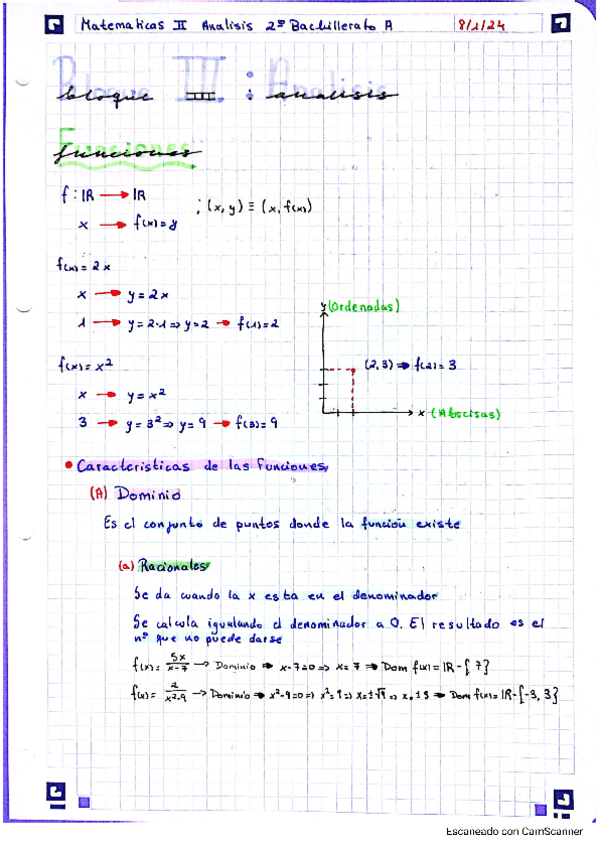 Matematicas II Analisis 2º Bachillerato A 8/1/24
Bloque III : Analisis
bloque III : analisis
Funciones
funciones
f : IR → IR ; (x, y) ≡ (x, f(x))
x → f(x) = y
f(x) = 2x
x → y = 2x
1 → y = 2·1 ⇒ y = 2 → f(1) = 2
y (Ordenadas)
(2, 3) ⇒ f(2) = 3
x (Abscisas)
f(x) = x²
x → y = x²
3 → y = 3² ⇒ y = 9 → f(3) = 9
• Caracteristicas de las Funciones
(A) Dominio
Es el conjunto de puntos donde la función existe
(a) Racionales
Se da cuando la x esta en el denominador
Se calcula igualando el denominador a 0. El resultado es el
nº que no puede darse
f(x) = 5x/x-7 → Dominio ⇒ x-7=0 ⇒ x=7 ⇒ Dom f(x) = IR - {7}
f(x) = 2/x²-9 → Dominio ⇒ x²-9=0 ⇒ x²=9 ⇒ x=±√9 ⇒ x=±3 ⇒ Dom f(x) = IR - {-3, 3}
Escaneado con CamScanner